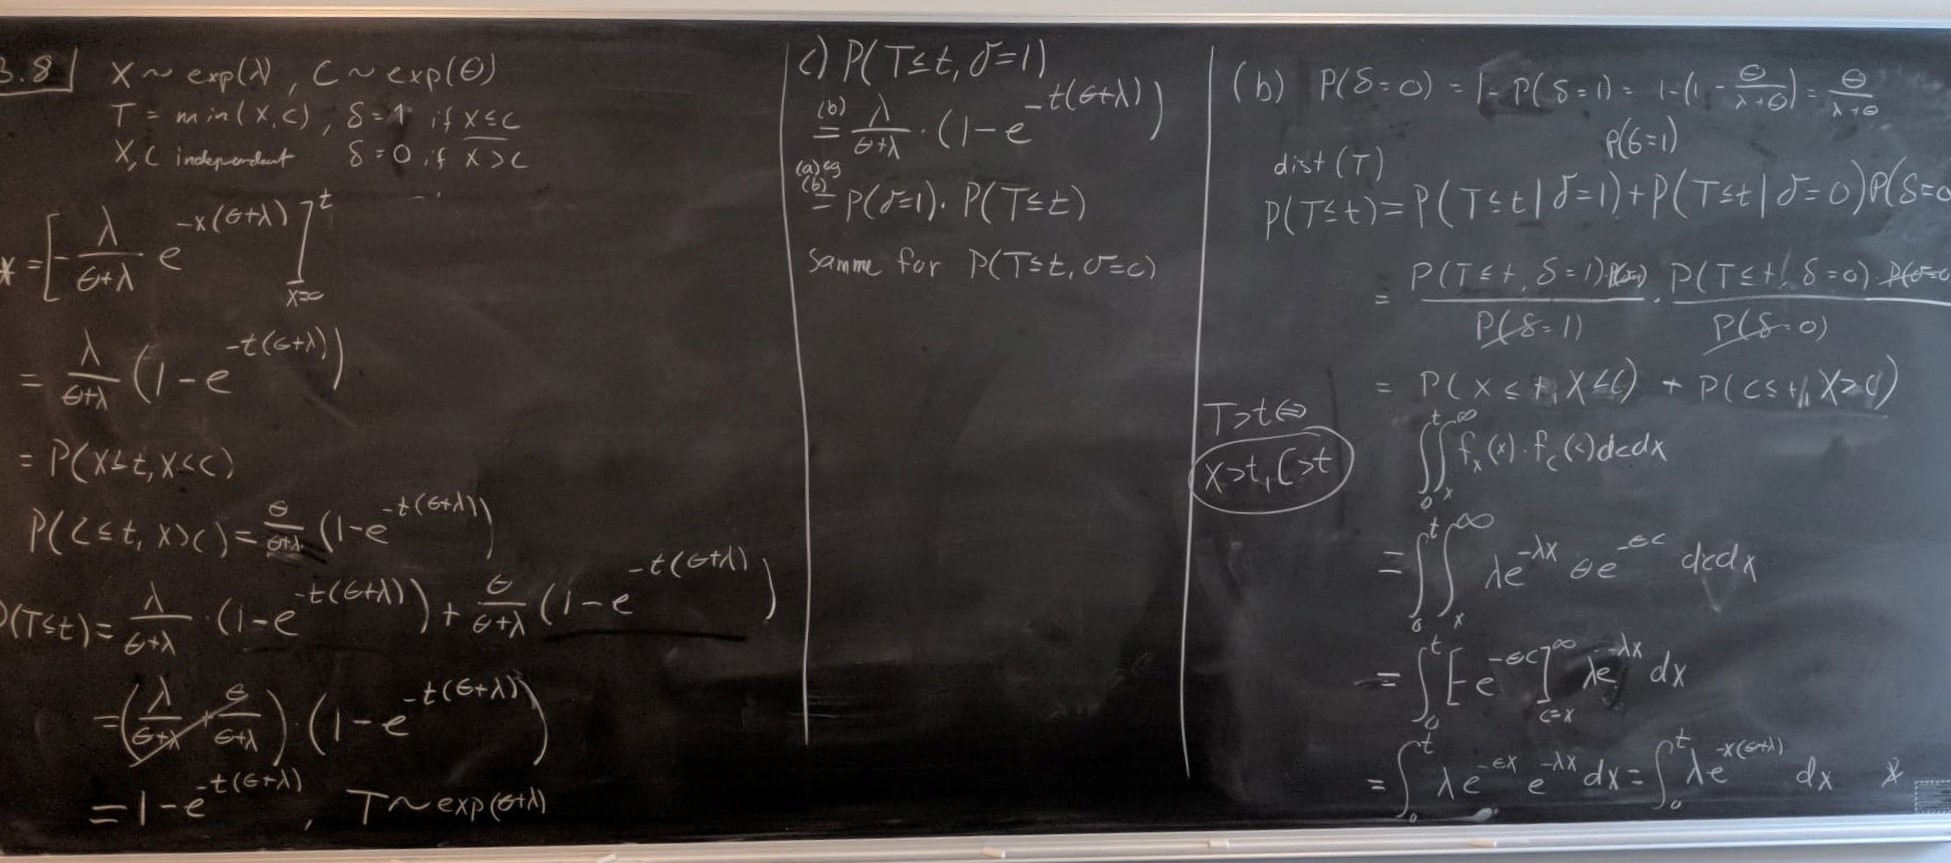 3.8 X ~ exp(λ), C ~ exp(θ)
T = min(X,C), δ=1 if X≤C
X,C independent δ=0 if X>C
* = [-λ/(θ+λ) e^{-x(θ+λ)}]_{x=0}^{t}
= λ/(θ+λ) (1-e^{-t(θ+λ)})
= P(X≤t, X<C)
P(C≤t, X>C) = θ/(θ+λ) (1-e^{-t(θ+λ)})
P(T≤t) = λ/(θ+λ) · (1-e^{-t(θ+λ)}) + θ/(θ+λ) (1-e^{-t(θ+λ)})
= (λ/(θ+λ) + θ/(θ+λ)) · (1-e^{-t(θ+λ)})
= 1-e^{-t(θ+λ)}, T~exp(θ+λ)
c) P(T≤t, δ=1)
(b) = λ/(θ+λ) · (1-e^{-t(θ+λ)})
(a) og (b) = P(δ=1) · P(T≤t)
samme for P(T≤t, δ=0)
(b) P(δ=0) = 1- P(δ=1) = 1-(1 - θ/(λ+θ)) = θ/(λ+θ)
P(δ=1)
dist (T)
P(T≤t) = P(T≤t|δ=1) + P(T≤t|δ=0)P(δ=0
= P(T≤t, δ=1)·P(δ=1)/P(δ=1) · P(T≤t, δ=0)·P(δ=0/P(δ=0)
= P(X≤t, X≤C) + P(C≤t, X>C)
T>t ⇔
X>t, C>t
∫_0^t ∫_x^∞ f_x(x)·f_c(c)dcdx
= ∫_0^t ∫_x^∞ λe^{-λx} θe^{-θc} dcdx
= ∫_0^t [-e^{-θc}]_{c=x}^∞ λe^{-λx} dx
= ∫_0^t λe^{-θx} e^{-λx} dx = ∫_0^t λe^{-x(θ+λ)} dx *